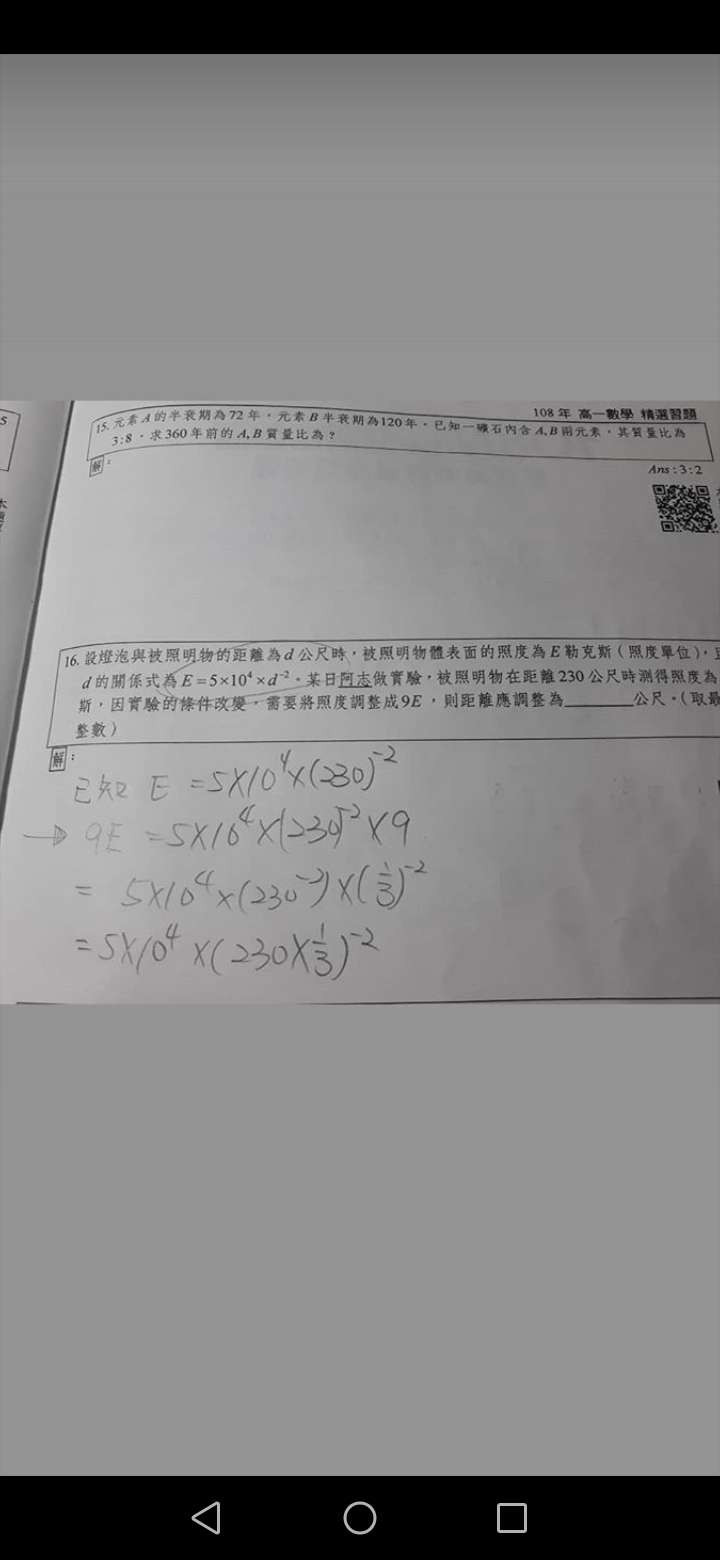 5
108年 高一數學 精選習題
15. 元素A的半衰期為72年，元素B半衰期為120年。已知一礦石內含A,B兩元素，其質量比為
3:8，求360年前的A,B質量比為？
解：
Ans：3：2
16. 設燈泡與被照明物的距離為d公尺時，被照明物體表面的照度為E勒克斯（照度單位），
d的關係式為E=5×10⁴×d⁻²。某日阿志做實驗，被照明物在距離230公尺時測得照度為
斯，因實驗的條件改變，需要將照度調整成9E，則距離應調整為________公尺。（取最
整數）
解：
已知 E =5×10⁴×(230)⁻²
→ 9E =5×10⁴×(230)⁻²×9
= 5×10⁴×(230⁻²)×(1/3)⁻²
=5×10⁴×(230×1/3)⁻²